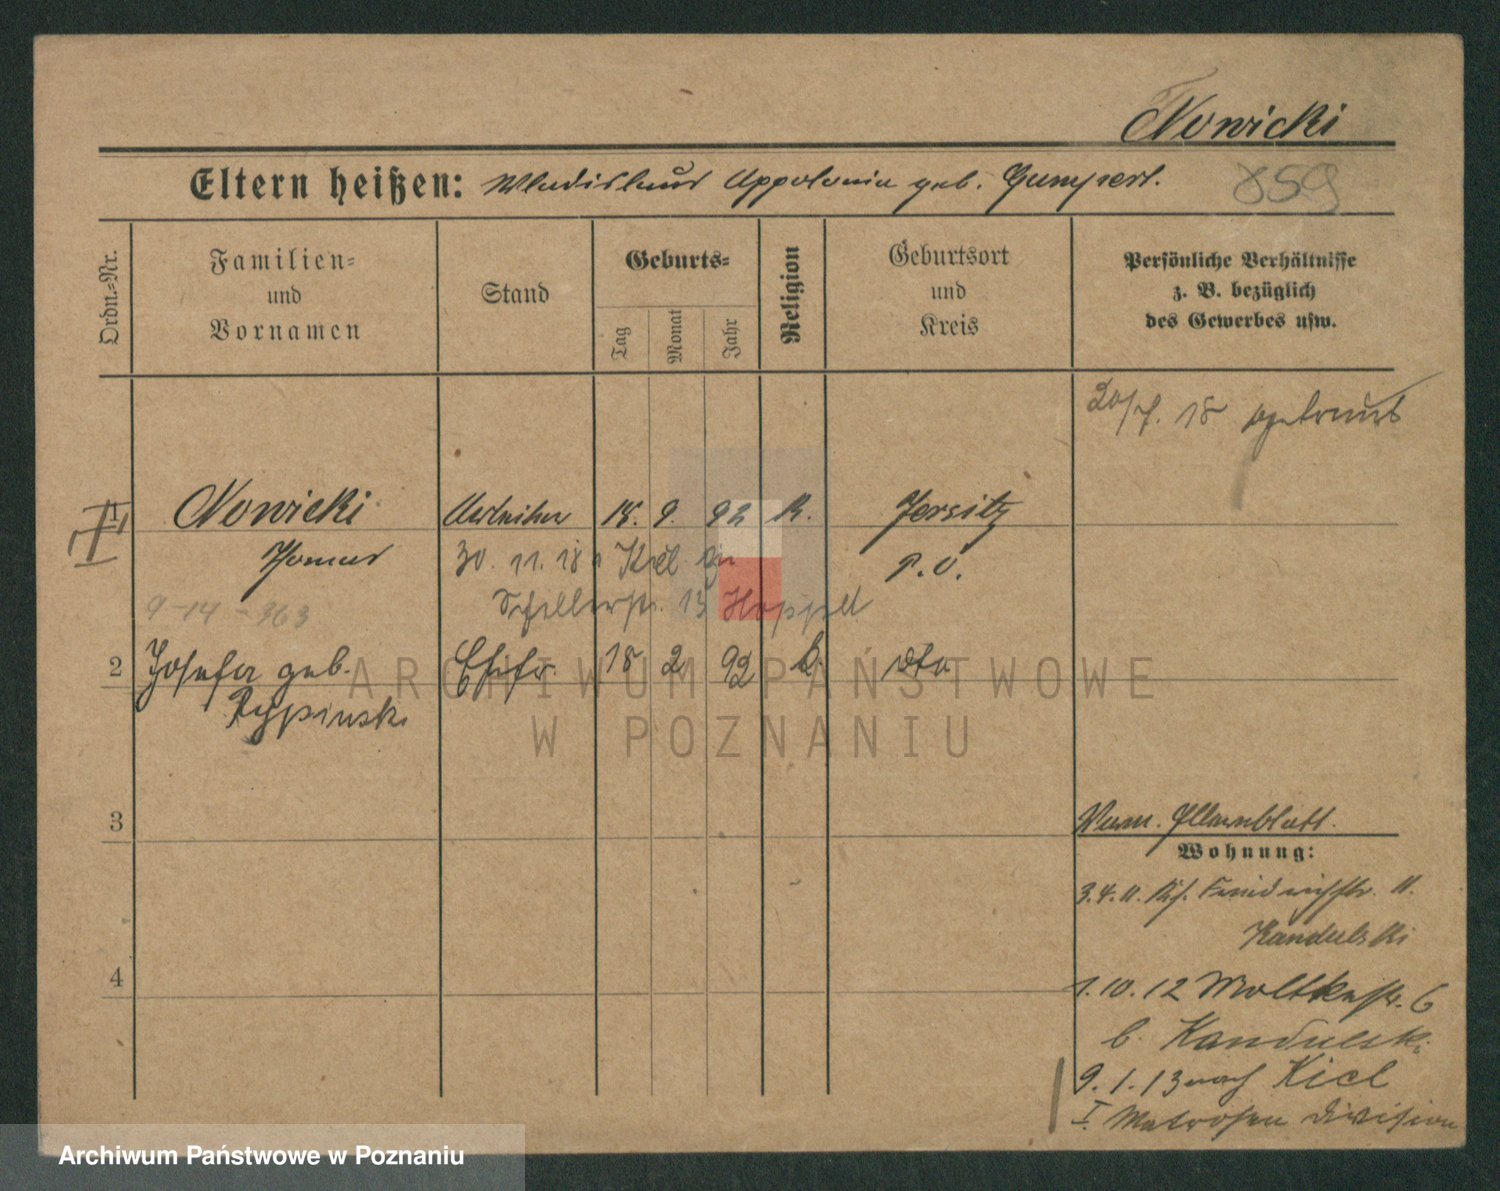 Nowicki
Eltern heißen: Wladislaus Appolonia geb. Gumpert.
859
Ordn.=Nr.
Familien=
und
Vornamen
Stand
Geburts=
Tag
Monat
Jahr
Religion
Geburtsort
und
Kreis
Persönliche Verhältnisse
z. B. bezüglich
des Gewerbes usw.
20/7. 18 getraut
1 Nowicki Arbeiter 18. 9. 92 K. Jersitz
Thomas 30. 11. 18 Kiel P. O.
9-14-363 Schillerstr. 13
2 Josefa geb. Ehefr. 18 2 92 k. dto
Rypinski
ARCHIWUM PAŃSTWOWE
W POZNANIU
3
Verm. Elternblatt.
Wohnung:
3. 4. 11. Kais. Friedrichstr. 11.
Kandulski
4
1. 10. 12 Moltkestr. 6
b. Kandulski
9. 1. 13 nach Kiel
I. Matrosen Division
Archiwum Państwowe w Poznaniu